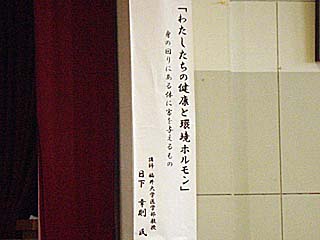 「わたしたちの健康と環境ホルモン」
身の回りにある体に害を与えるもの
講師 福井大学医学部教授
日下 幸則 氏